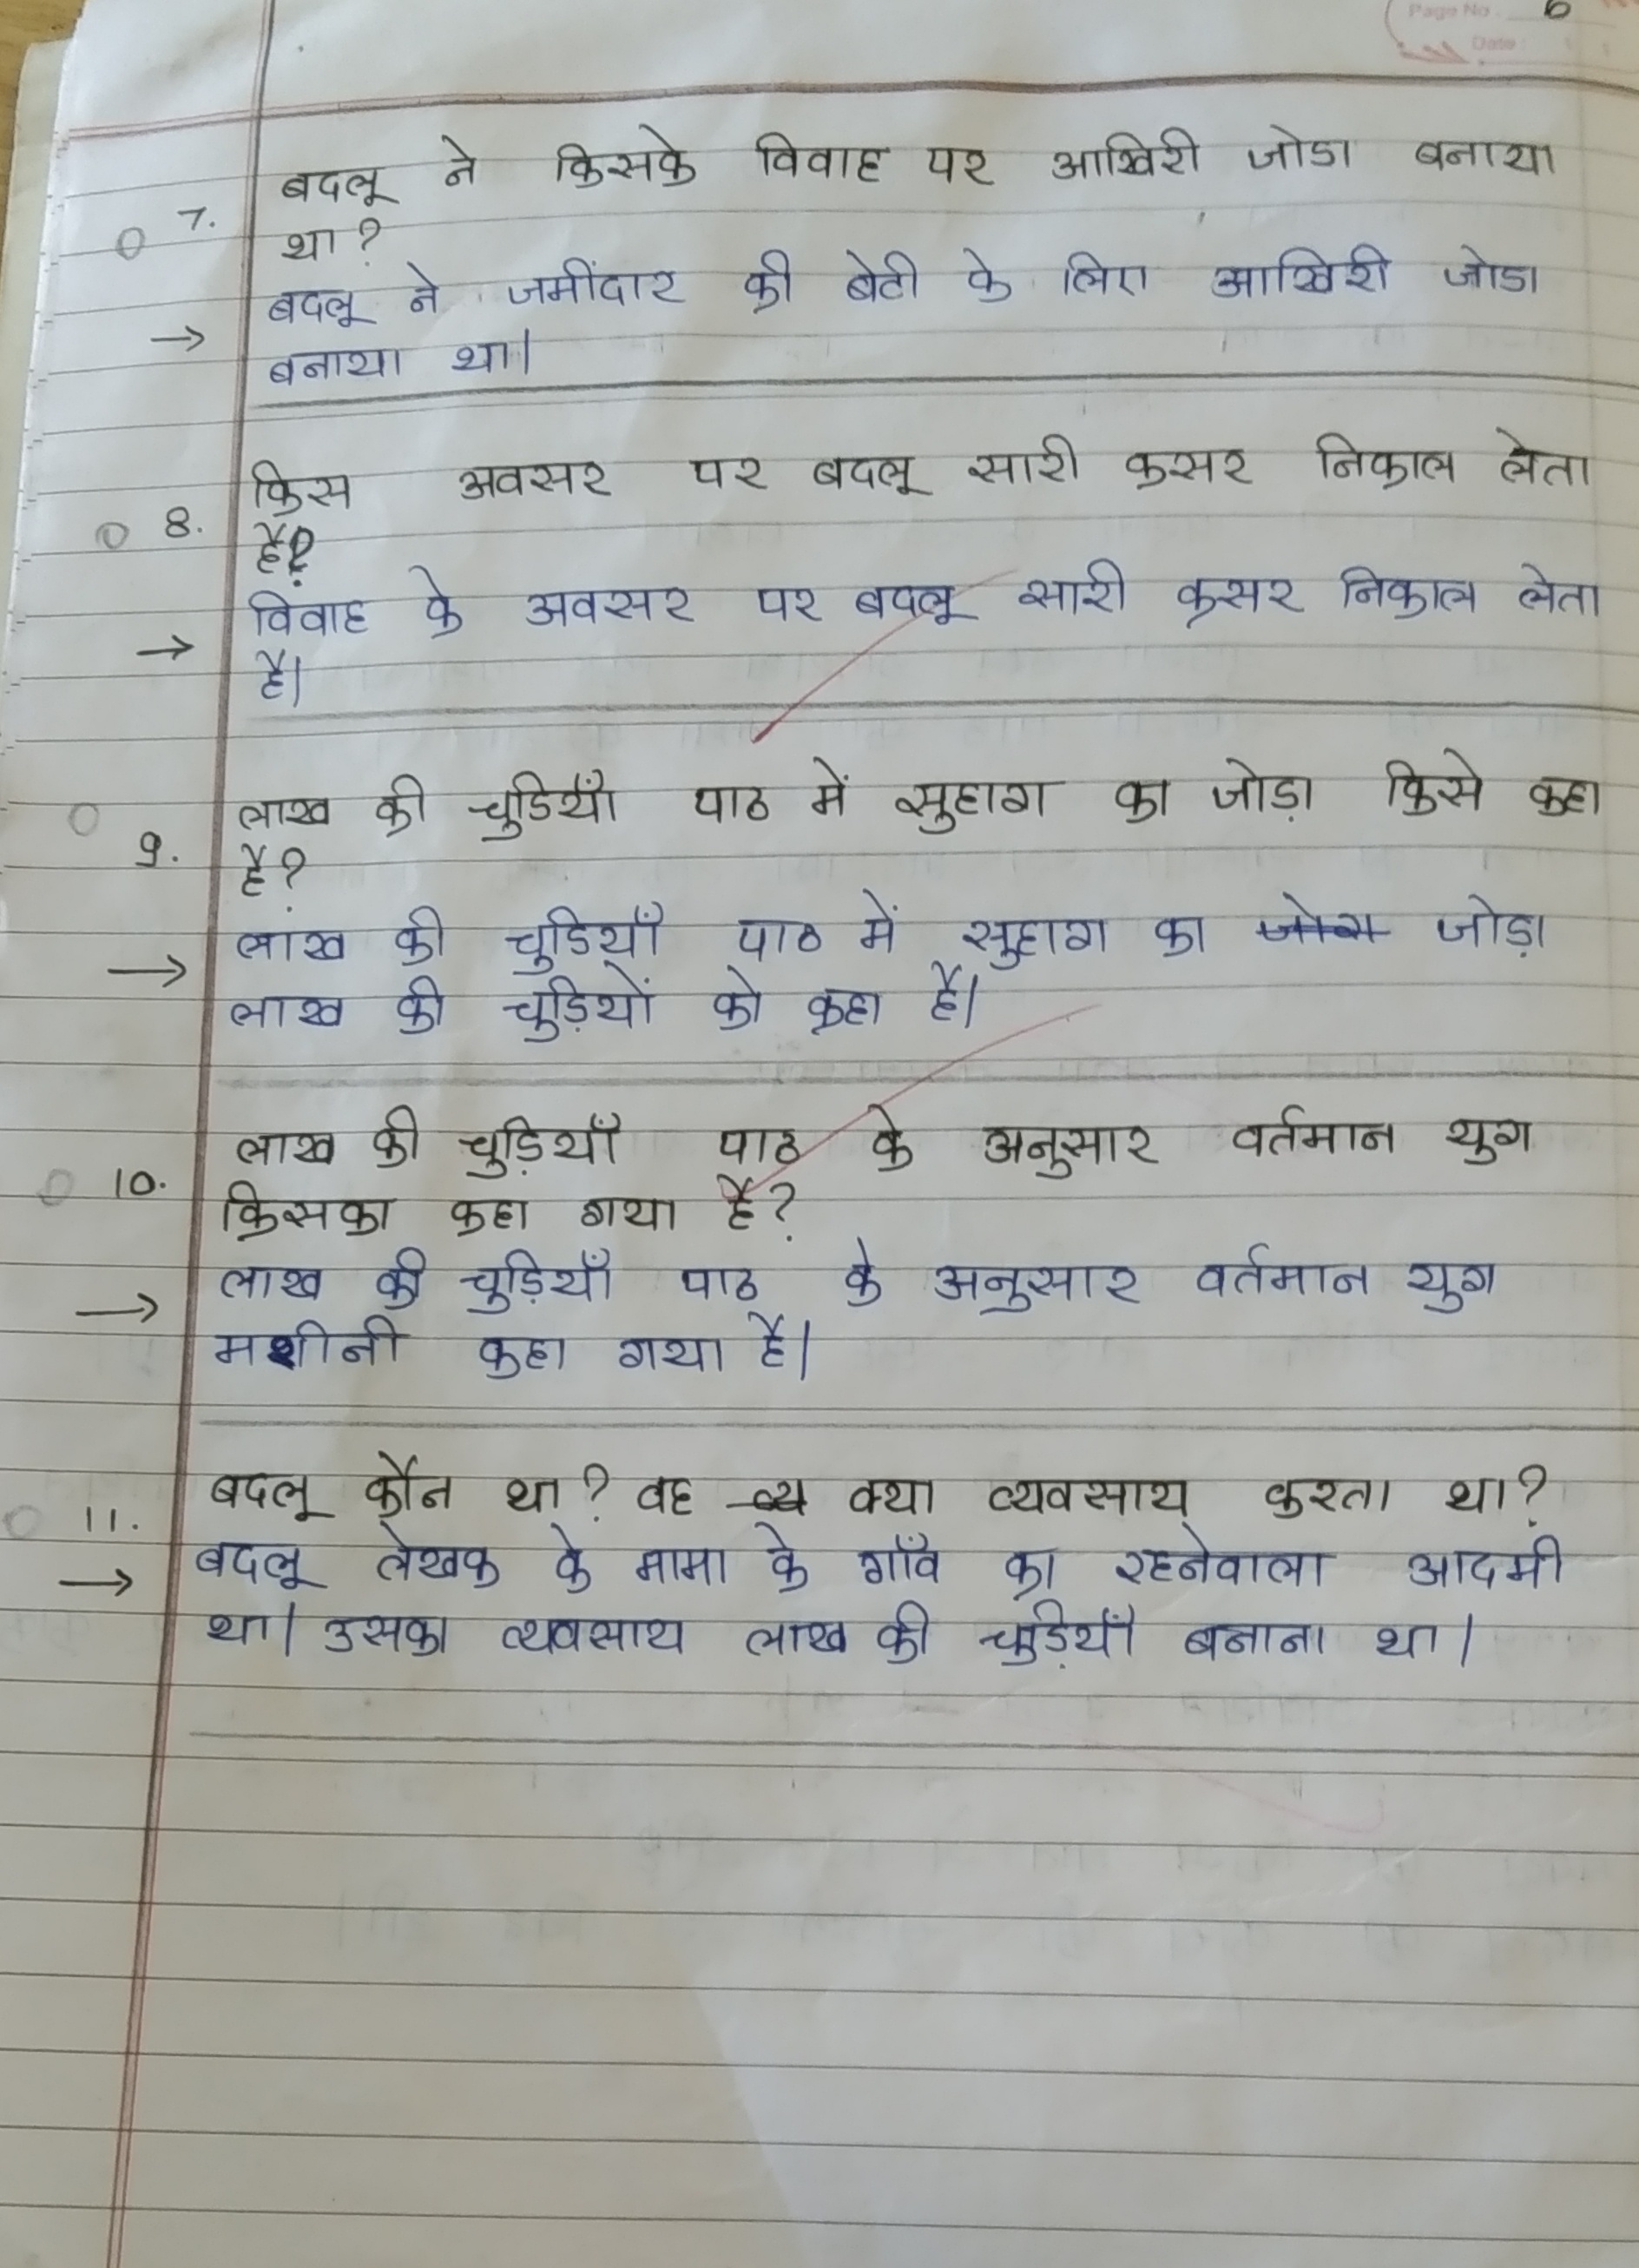 Page No. 6
Date:
बदलू ने किसके विवाह पर आखिरी जोडा बनाया
7. था?
→ बदलू ने जमींदार की बेटी के लिए आखिरी जोडा
बनाया था।
किस अवसर पर बदलू सारी कसर निकाल लेता
8. है?
→ विवाह के अवसर पर बदलू सारी कसर निकाल लेता
है।
लाख की चुडियाँ पाठ में सुहाग का जोड़ा किसे कहा
9. है?
→ लाख की चुडियाँ पाठ में सुहाग का जोड़ा
लाख की चुड़ियों को कहा है।
10. लाख की चुड़ियाँ पाठ के अनुसार वर्तमान युग
किसका कहा गया है?
→ लाख की चुड़ियाँ पाठ के अनुसार वर्तमान युग
मशीनी कहा गया है।
11. बदलू कौन था? वह क्या व्यवसाय करता था?
→ बदलू लेखक के मामा के गाँव का रहनेवाला आदमी
था। उसका व्यवसाय लाख की चुड़ियाँ बनाना था।